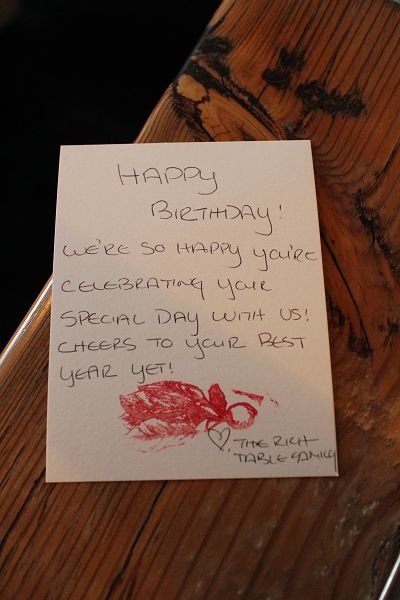 HAPPY
BIRTHDAY!
WE'RE SO HAPPY YOU'RE
CELEBRATING YOUR
SPECIAL DAY WITH US!
CHEERS TO YOUR BEST
YEAR YET!
THE RICH
TABLE FAMILY